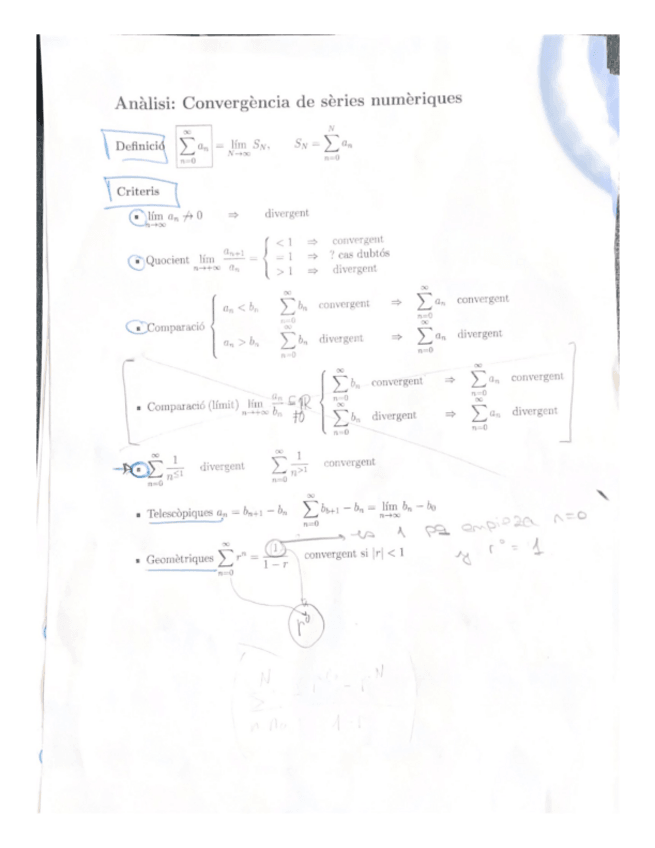 Anàlisi: Convergència de sèries numèriques
Definició ∑_{n=0}^{∞} a_n = lím_{N→∞} S_N, S_N = ∑_{n=0}^{N} a_n
Criteris
▪ lím_{n→∞} a_n ↛ 0 ⇒ divergent
▪ Quocient lím_{n→+∞} a_{n+1}/a_n = { < 1 ⇒ convergent
= 1 ⇒ ? cas dubtós
> 1 ⇒ divergent
▪ Comparació { a_n < b_n ∑_{n=0}^{∞} b_n convergent ⇒ ∑_{n=0}^{∞} a_n convergent
a_n > b_n ∑_{n=0}^{∞} b_n divergent ⇒ ∑_{n=0}^{∞} a_n divergent
▪ Comparació (límit) lím_{n→+∞} a_n/b_n ∈ ℝ ≠0 { ∑_{n=0}^{∞} b_n convergent ⇒ ∑_{n=0}^{∞} a_n convergent
∑_{n=0}^{∞} b_n divergent ⇒ ∑_{n=0}^{∞} a_n divergent
▪ ∑_{n=0}^{∞} 1/n^{≤1} divergent ∑_{n=0}^{∞} 1/n^{>1} convergent
▪ Telescòpiques a_n = b_{n+1} − b_n ∑_{n=0}^{∞} b_{n+1} − b_n = lím_{n→∞} b_n − b_0
es 1 pq empieza n=0
▪ Geomètriques ∑_{n=0}^{∞} r^n = 1/(1 − r) convergent si |r| < 1
y r° = 1
r°